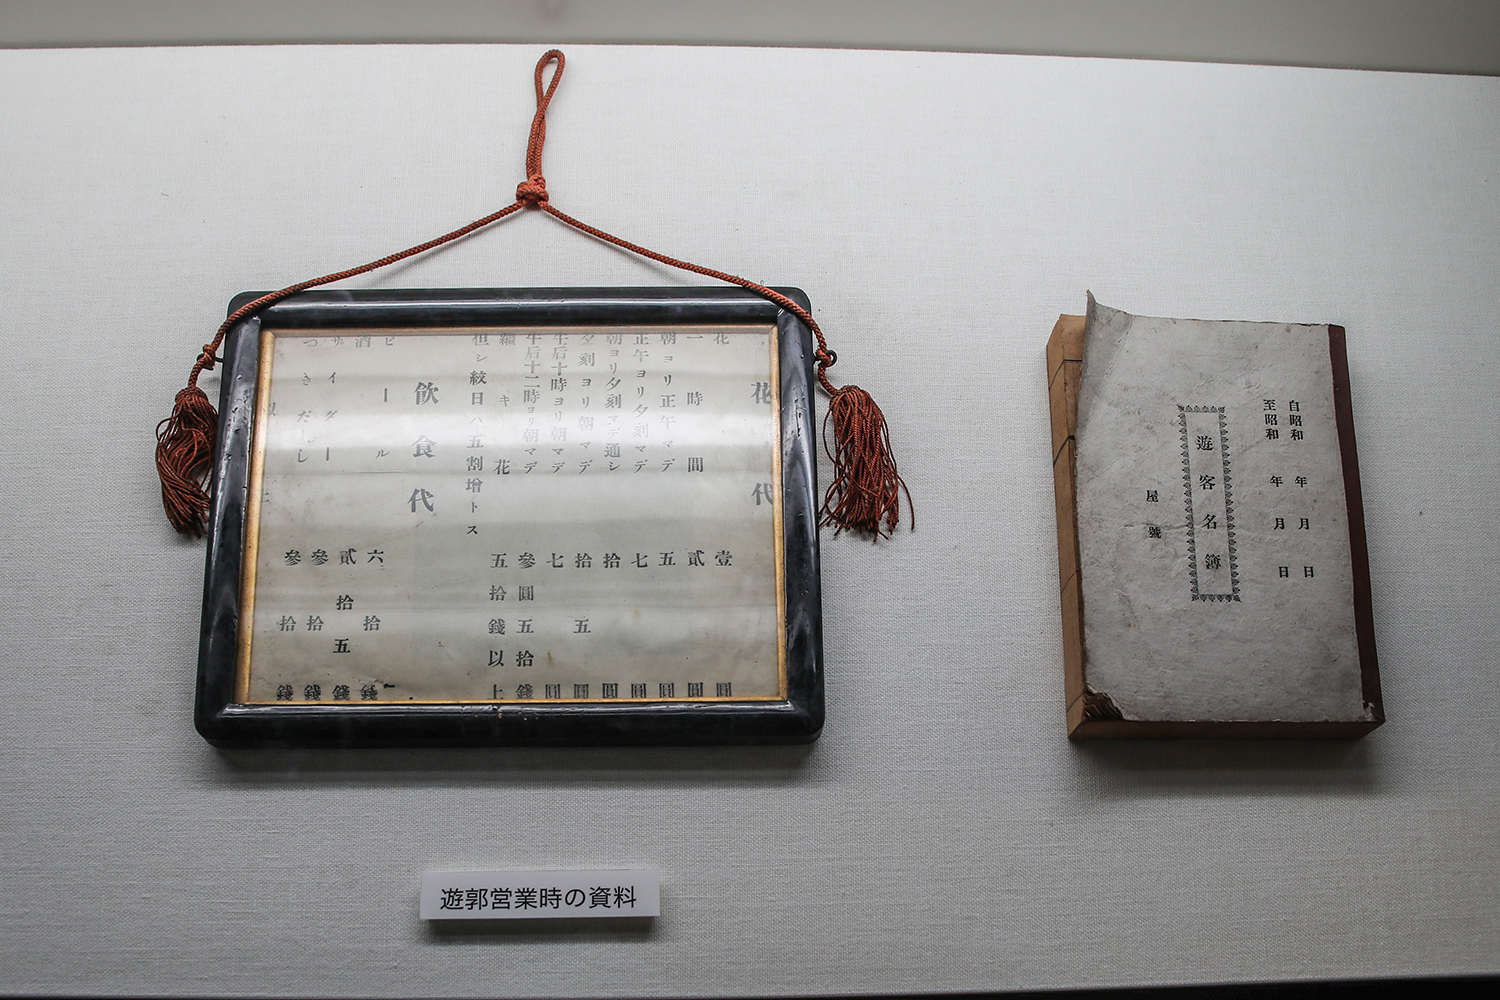 花代
花 壹圓
一時間 貳圓
朝ヨリ正午マデ 五圓
正午ヨリ夕刻マデ 七圓
朝ヨリ夕刻マデ通シ 拾圓
夕刻ヨリ朝マデ 拾五圓
午后十時ヨリ朝マデ 七圓
午后十二時ヨリ朝マデ 參圓五拾錢
續キ花 五拾錢以上
但シ紋日ハ五割増トス
飲食代
ビール 六拾錢
酒 貳拾五錢
サイダー 參拾錢
つきだし 參拾錢
以上
自昭和 年 月 日
至昭和 年 月 日
遊客名簿
屋號
遊郭営業時の資料